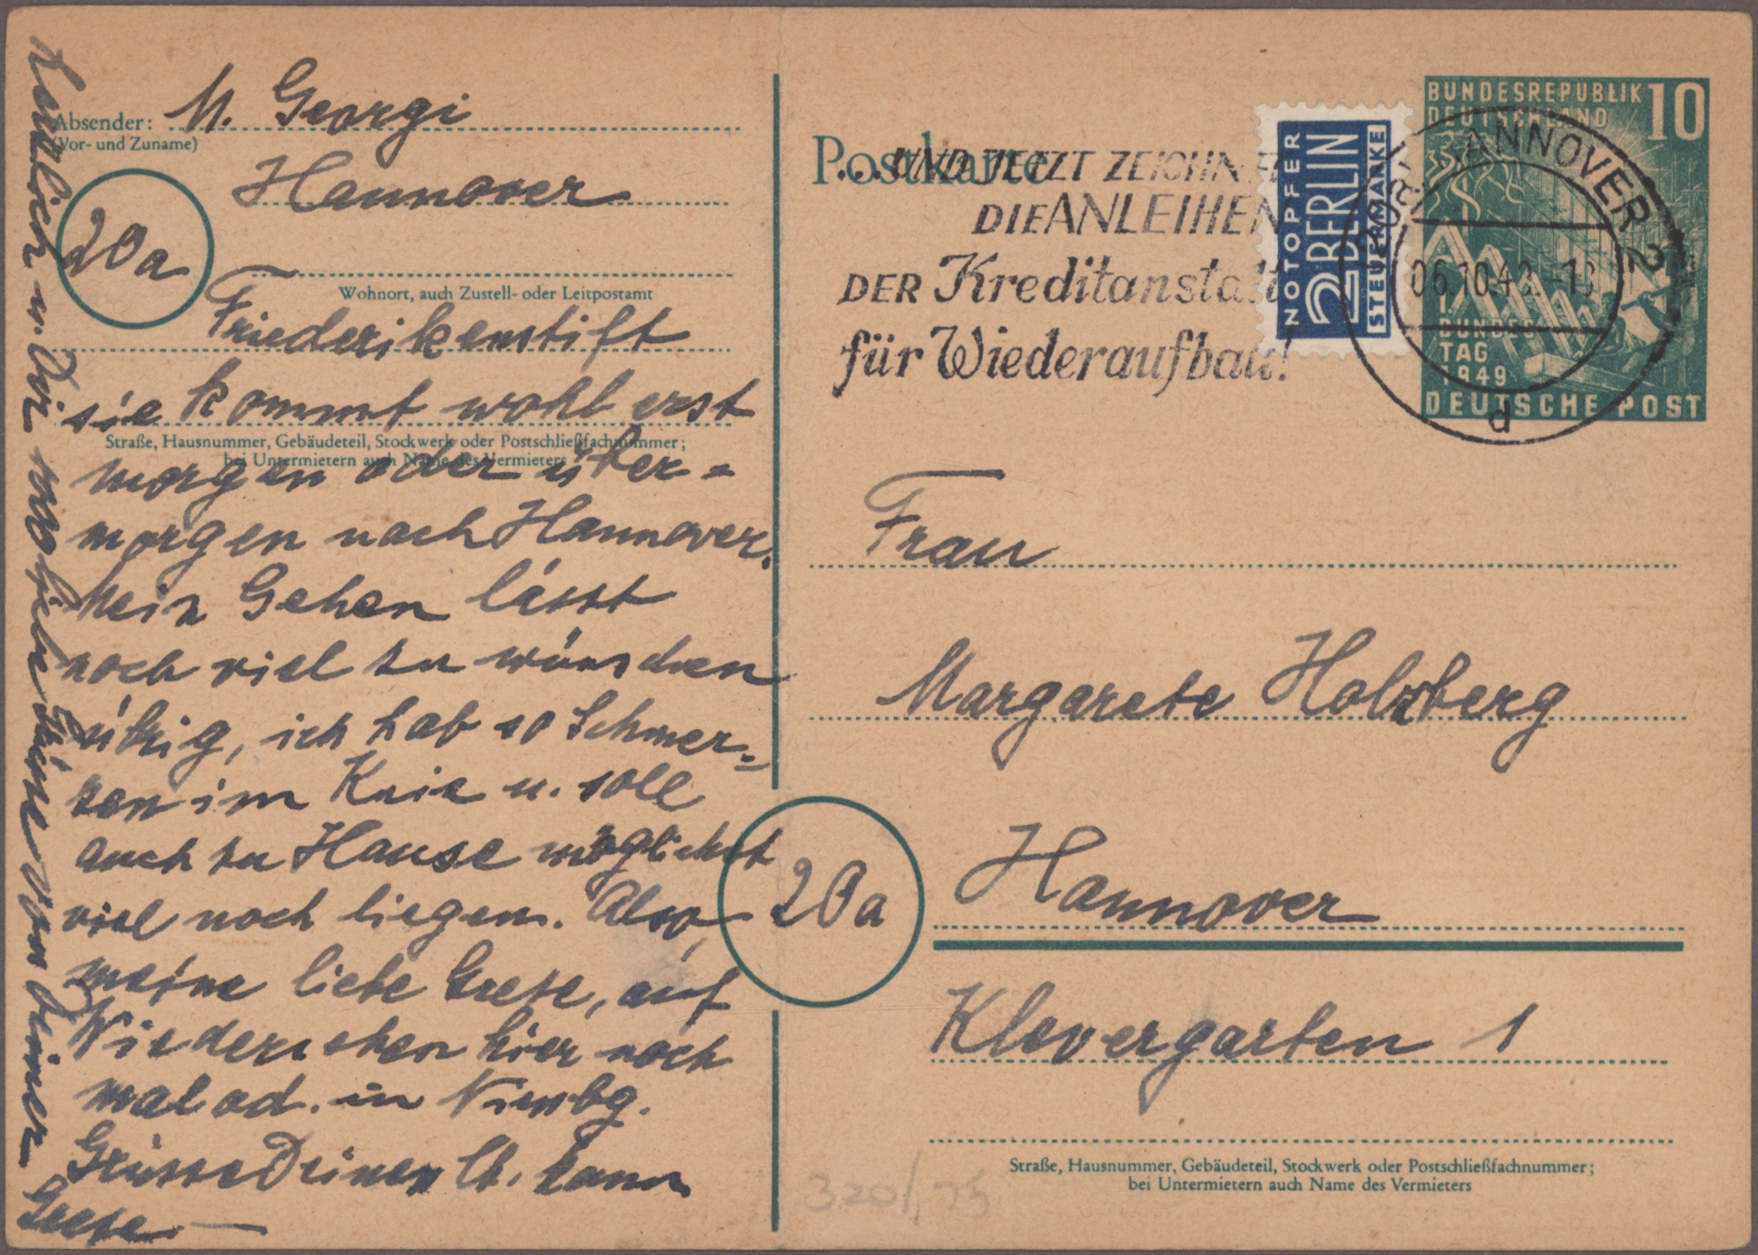 Absender: M. Georgi
(Vor- und Zuname)
Hannover
20a
Wohnort, auch Zustell- oder Leitpostamt
Friederikenstift
sie kommt wohl erst
Straße, Hausnummer, Gebäudeteil, Stockwerk oder Postschließfachnummer;
bei Untermietern auch Name des Vermieters
morgen oder über=
morgen nach Hannover.
Mein Gehen lässt
noch viel zu wünschen
übrig, ich hab so Schmer=
zen im Knie u. soll
auch zu Hause möglichst
viel noch liegen. Also,
meine liebe Grete, auf
Wiedersehen hier noch
mal od. in Nienbg.
Grüsse Deinen lb. Mann
herzlich u. Dir viele Grüße von Deiner
Grete
Postkarte
... UND JETZT ZEICHNET
DIE ANLEIHEN
DER Kreditanstalt
für Wiederaufbau!
NOTOPFER
2 BERLIN
STEUERMARKE
HANNOVER 2
06.10.49.-18
d
BUNDESREPUBLIK
DEUTSCHLAND
10
1.
BUNDES
TAG
1949
DEUTSCHE POST
Frau
Margarete Holzberg
20a
Hannover
Klevergarten 1
Straße, Hausnummer, Gebäudeteil, Stockwerk oder Postschließfachnummer;
bei Untermietern auch Name des Vermieters
320/,75